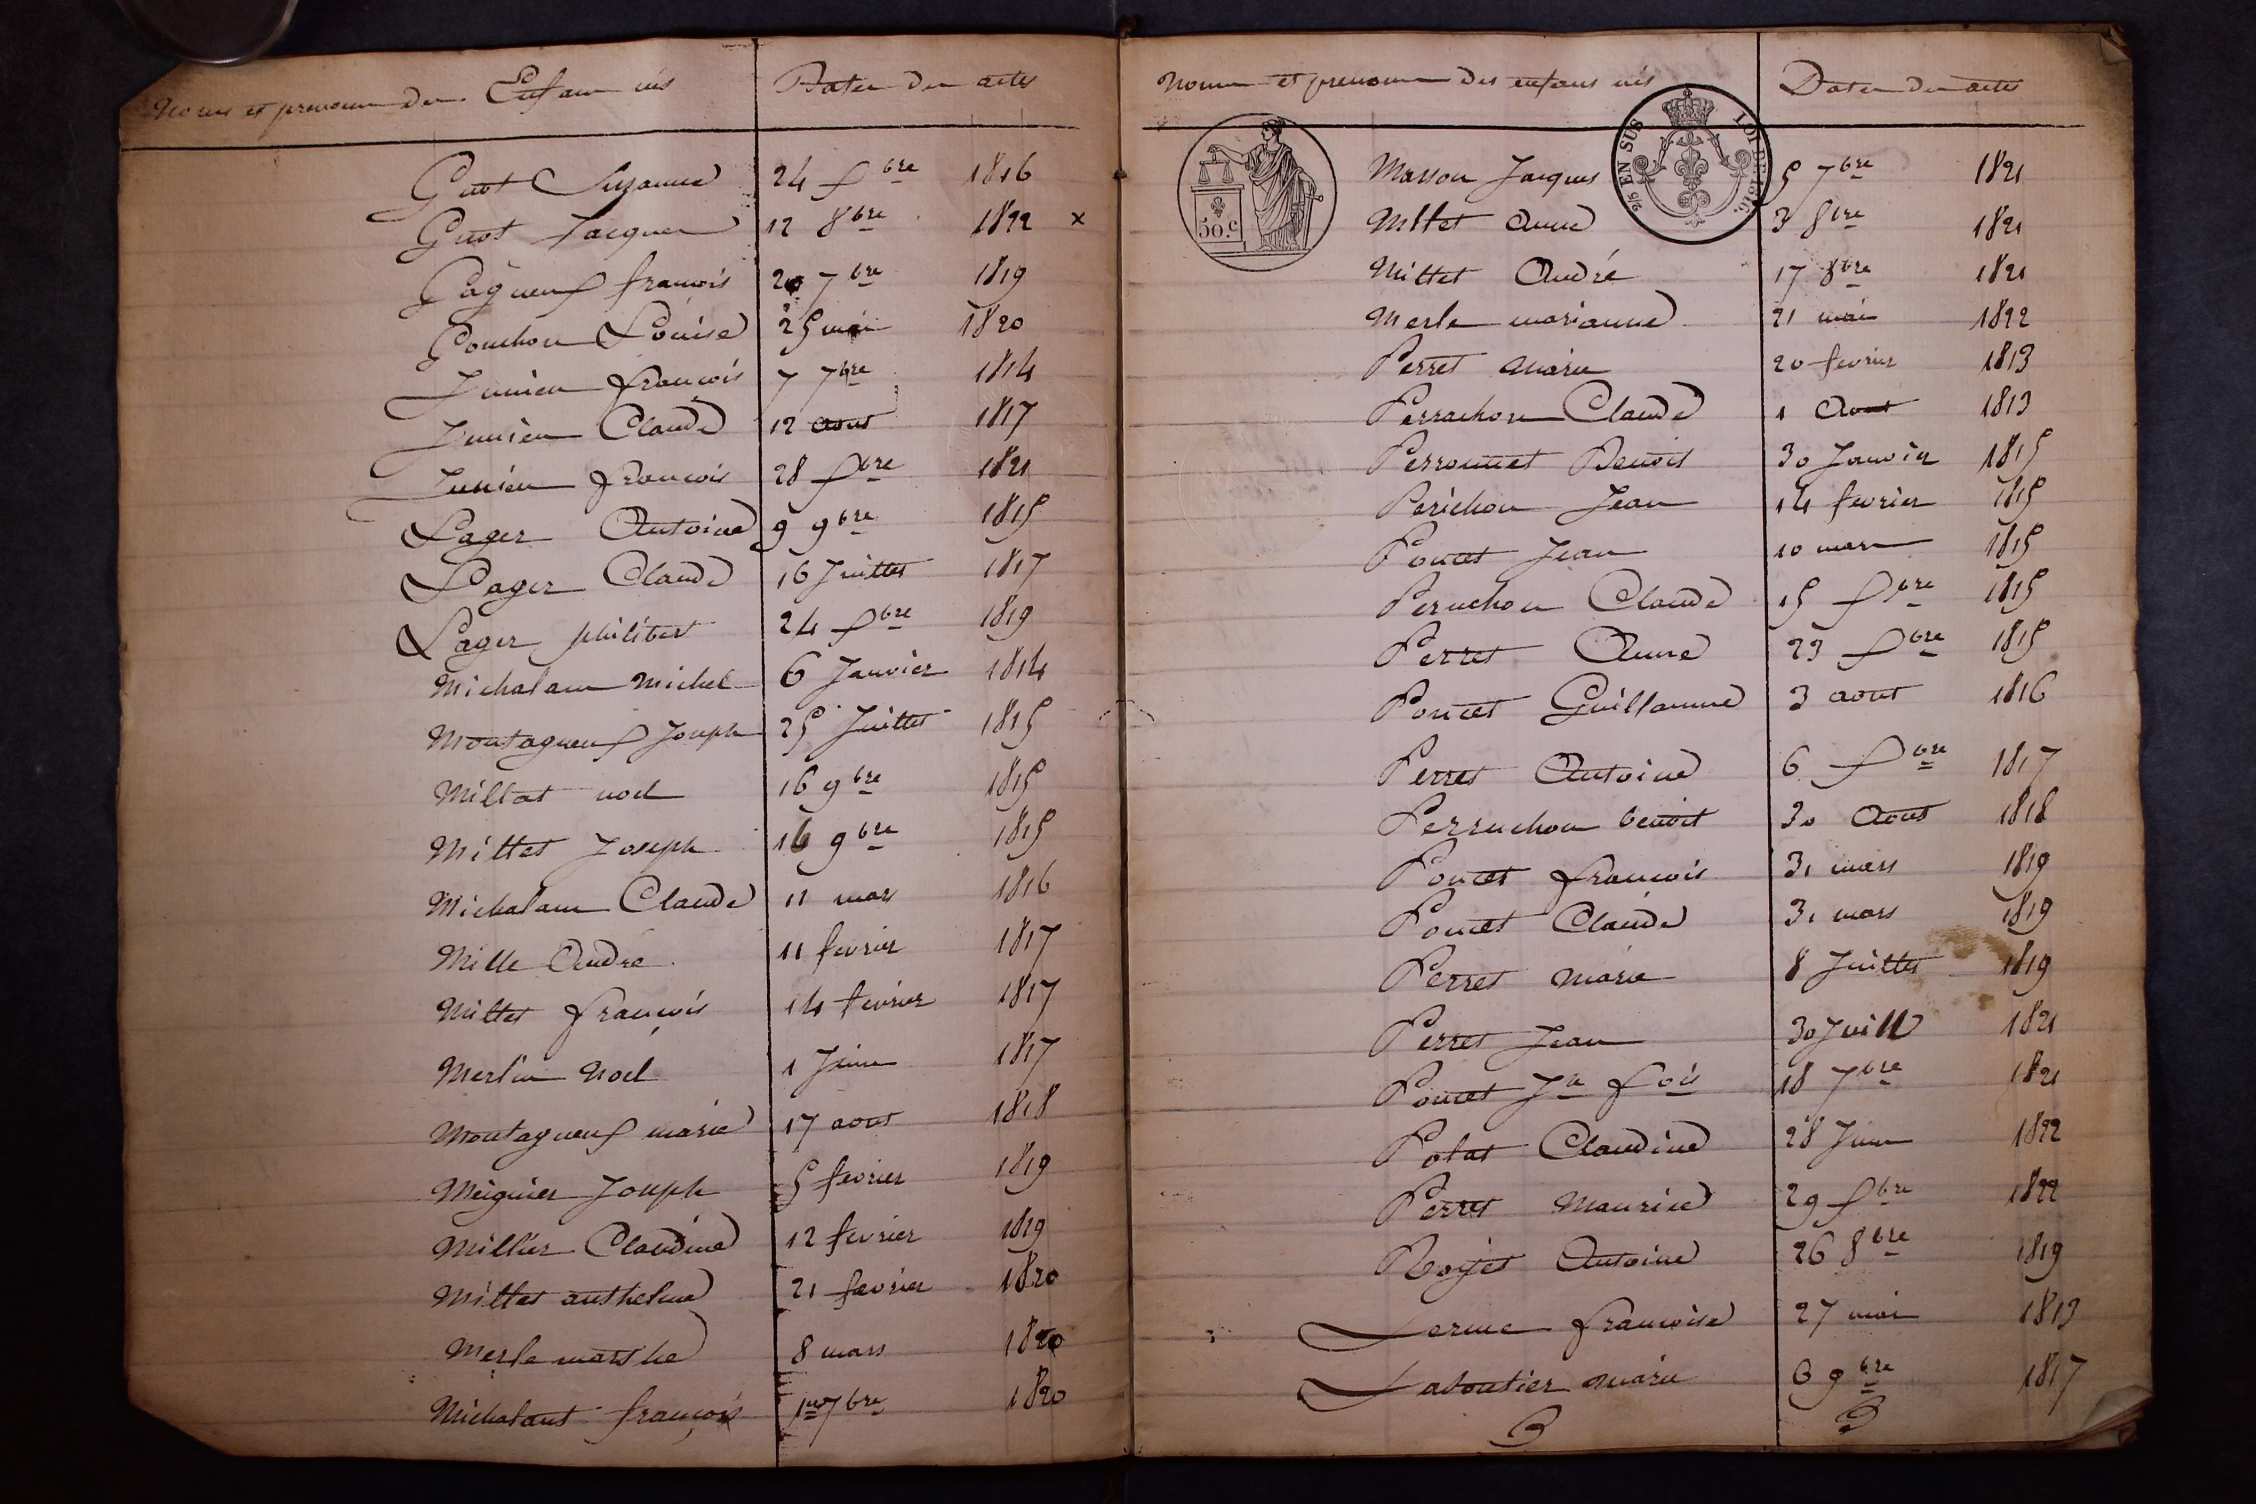 Noms et prenoms des Enfans nés Dates des actes
Guot Suzanne 24 Xbre 1816
Guot Jacques 12 8bre 1822 x
Gagneux françois 20 7bre 1819
Gonchon Louise 25 mai 1820
Junien françois 7 7bre 1814
Junien Claude 12 aout 1817
Junien françois 28 Xbre 1821
Lager Antoine 9 9bre 1815
Lager Claude 16 Juillet 1817
Lager philibert 24 Xbre 1819
Michalam Michel 6 Janvier 1814
Montagneux Joseph 25 Juillet 1815
Millat noel 16 9bre 1815
Millet Joseph 16 9bre 1815
Michalam Claude 11 mars 1816
Mille André 11 fevrier 1817
Millet françois 14 fevrier 1817
Merlin Noël 1 Juin 1817
Montagneux marie 17 aout 1818
Meignier Joseph 5 fevrier 1819
Millier Claudine 12 fevrier 1819
Millet anthelme 21 fevrier 1820
Merle marthe 8 mars 1820
Michalant françois 1er 7bre 1820
Noms et prenoms des enfans nés Dates des actes
2/5 EN SUS LOI DE 1816.
50.c
Masson Jacques 5 7bre 1821
Millet Anne 3 8bre 1821
Millet André 17 8bre 1821
Merle marianne 21 mai 1822
Perret Marie 20 fevrier 1813
Perrachon Claude 1 Aout 1813
Perronnet Benoit 30 Janvier 1815
Perichon Jean 14 fevrier 1815
Poncet Jean 10 mars 1815
Peruchon Claude 15 Xbre 1815
Perret Anne 23 Xbre 1815
Poncet Guillaume 3 aout 1816
Perret Antoine 6 Xbre 1817
Perruchon benoit 30 Aout 1818
Poncet françois 31 mars 1819
Poncet Claude 31 mars 1819
Perret Marie 8 Juillet 1819
Perret Jean 30 Juill 1821
Poncet Jn fois 18 7bre 1821
Polat Claudine 28 Juin 1822
Perret Maurice 29 Xbre 1822
Royet Antoine 26 8bre 1819
françoise 27 mai 1813
marie 6 9bre 1817